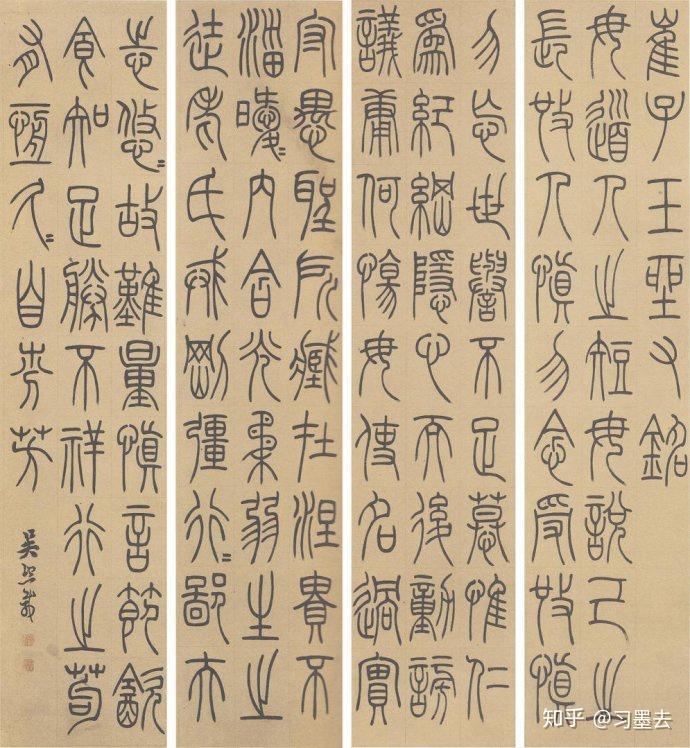 崔子玉坐又銘
毋道人之短毋說己之
長施人慎勿念受施慎
勿忘世譽不足慕惟仁
爲紀綱隱心而後動謗
議庸何傷毋使名過實
守愚聖所臧在涅貴不
淄曖=內含光柔弱生之
徒老氏戒剛彊行=鄙夫
志悠=故難量慎言節飲
食知足勝不祥行之苟
有恆久=自芬芳
吳熙載
知乎 @习墨去